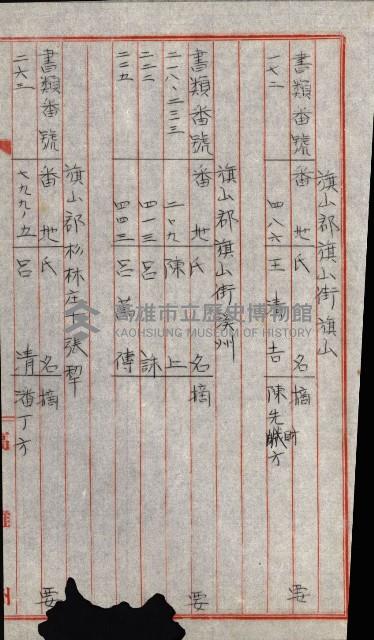 旗山郡旗山街旗山
書類番號 番地 氏名 摘要
一七二 四八六 王清吉 陳先財方
旗山郡旗山街溪州
書類番號 番地 氏名 摘要
二一八、二三三 二〇九 陳上
二二二 四一三 呂誅
二三五 四四三 呂傳
旗山郡杉林庄十張犁
書類番號 番地 氏名 摘要
二六三 七九九ノ五 呂清 潘丁方
高雄州
高雄市立歷史博物館
KAOHSIUNG MUSEUM OF HISTORY